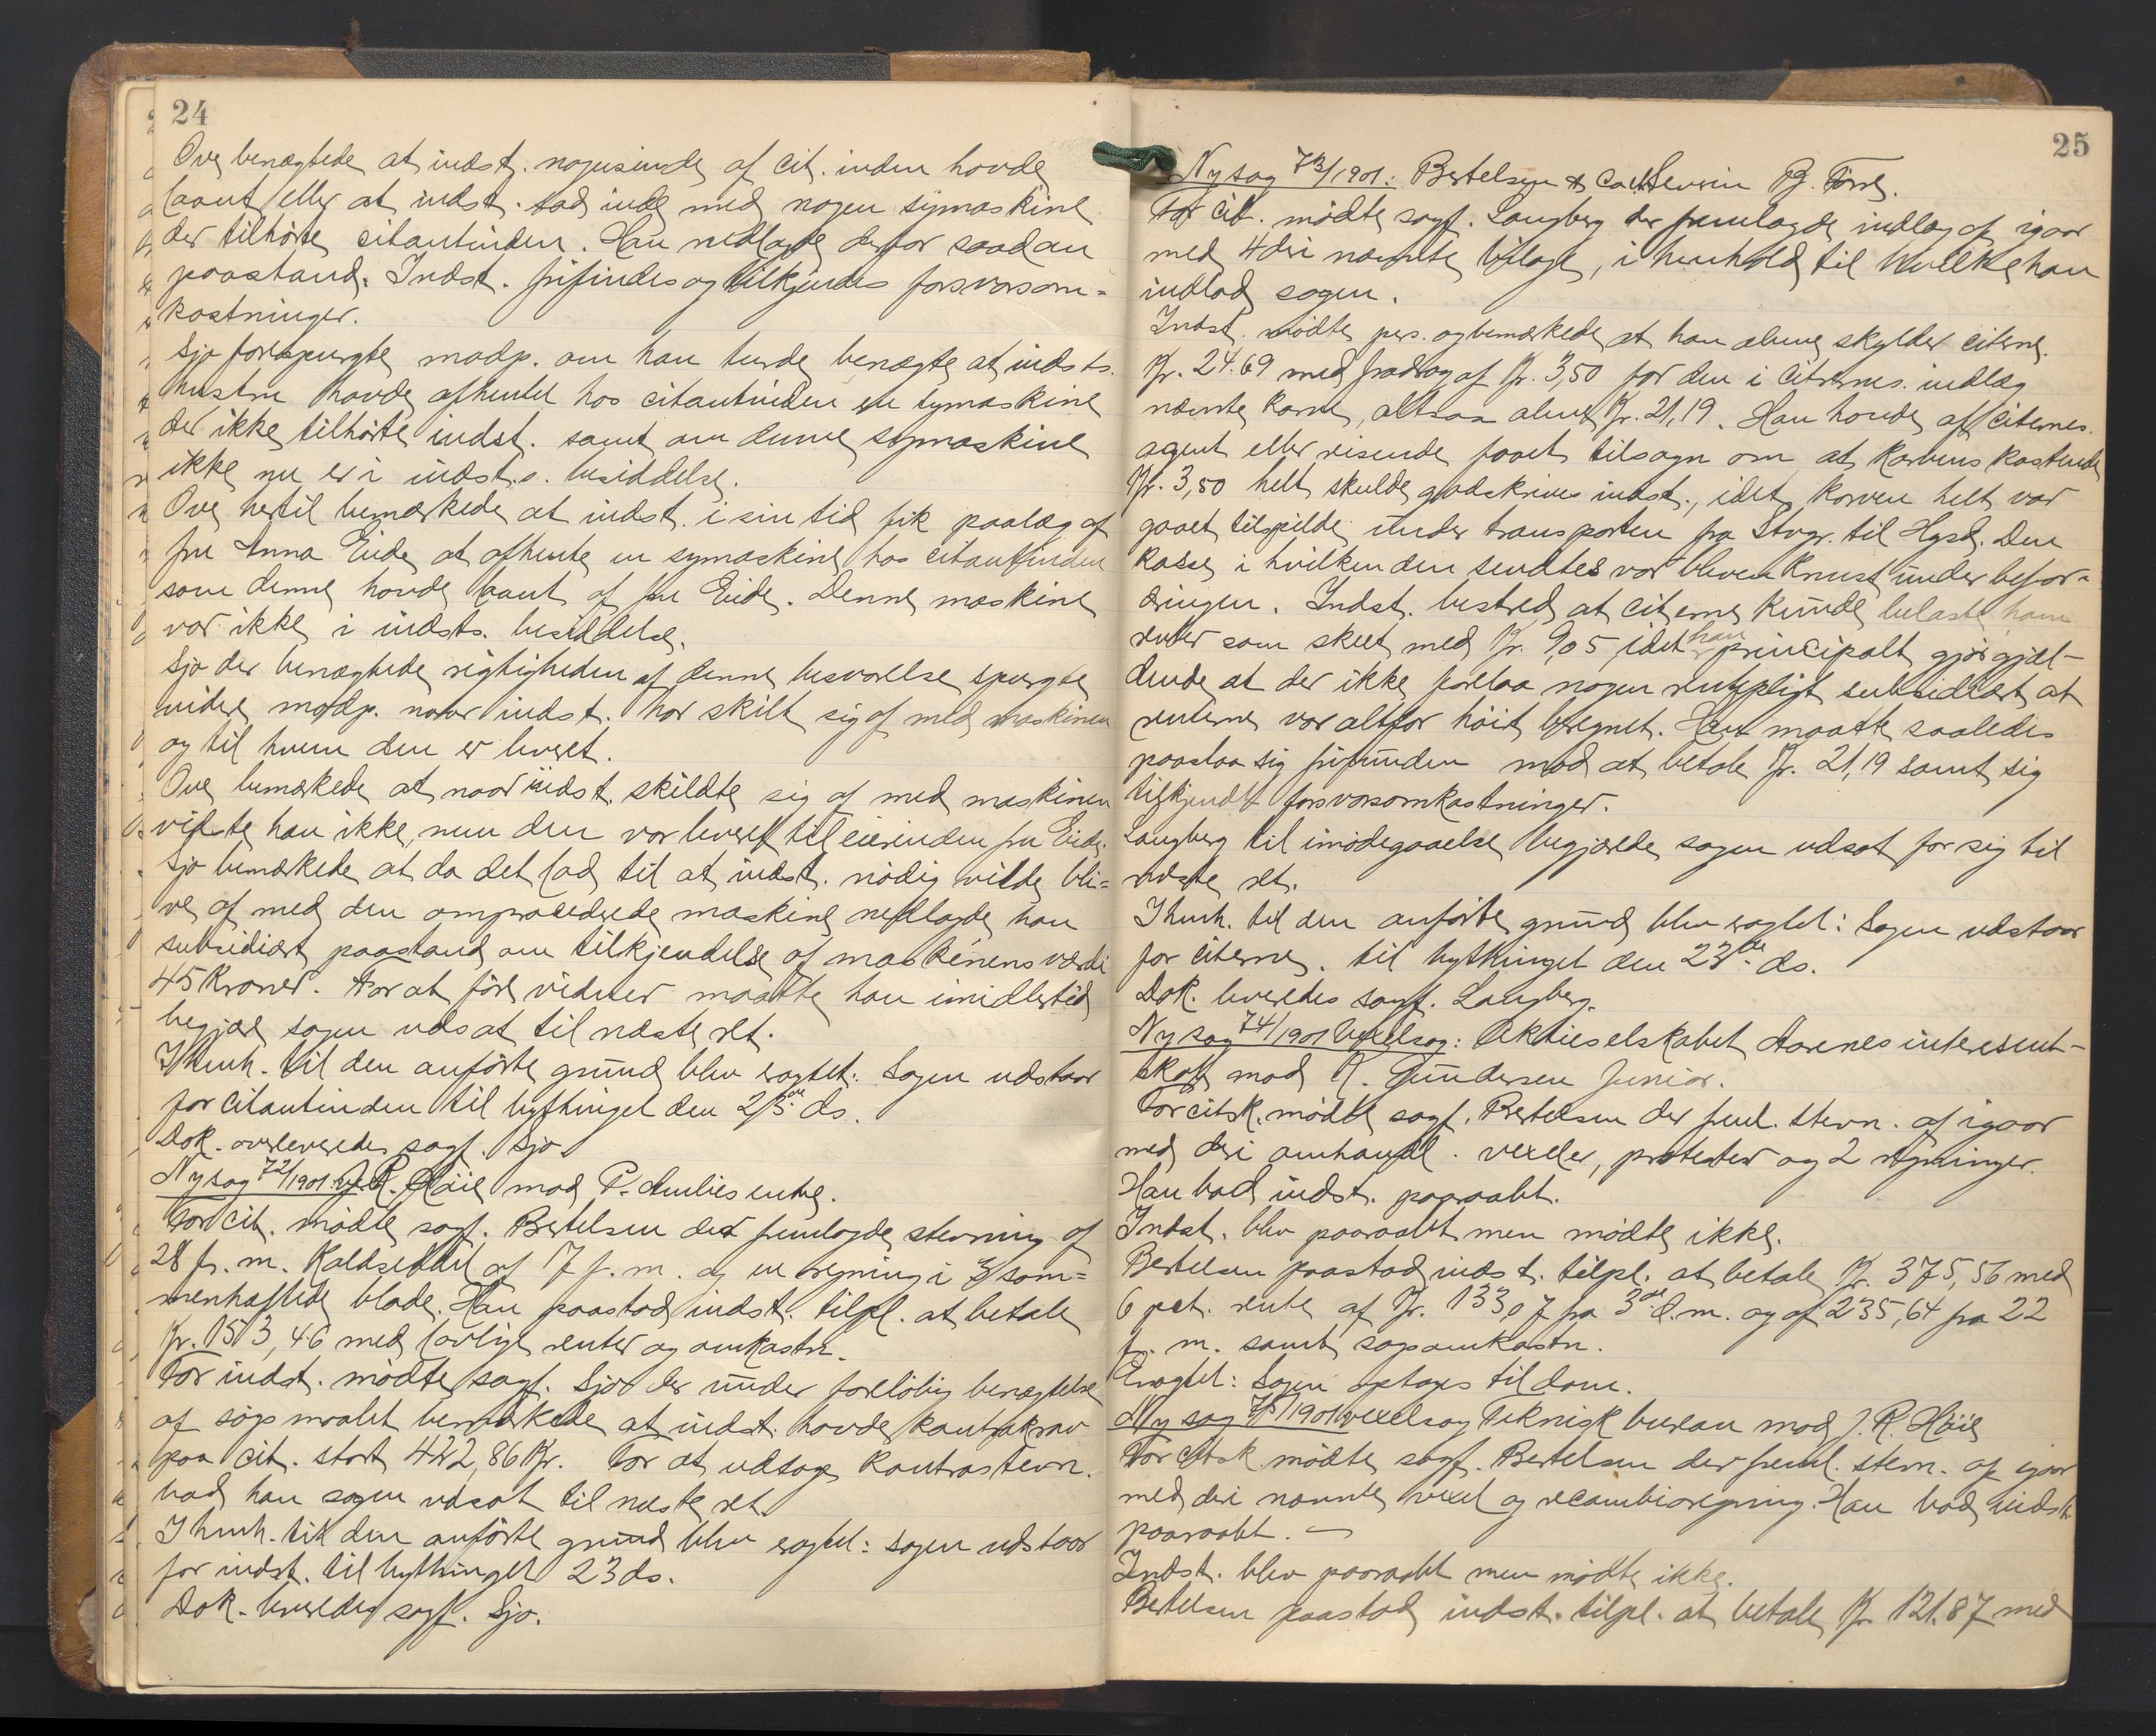 24
Ove benægtede at indst. nogensinde af cit. inden havde
laant eller at indst. sad inde med nogen symaskine
der tilhørte citantinden. Han nedlagde derfor saadan
paastand: Indst. frifindes og tilkjendes forsvarsom-
kostninger.
Sjo forespurgte modp. om han turde benægte at indsts.
hustru havde afhentet hos citantinden en symaskine
der ikke tilhørte indst. samt om denne symaskine
ikke nu er i indst.s. besiddelse.
Ove hertil bemærkede at indst. i sin tid fik paalæg af
fru Anna Eide at afhente en symaskine hos citantinden
som denne havde laant af fru Eide. Denne maskine
var ikke i indsts. besiddelse.
Sjo der benægtede rigtigheden af denne besvarelse spurgte
videre modp. naar indst. har skilt sig af med maskinen
og til hvem den er leveret.
Ove bemærkede at naar indst. skildte sig af med maskinen
vidste han ikke, men den var leveret til eierinden fru Eide.
Sjo bemærkede at da det lod til at indst. nødig vilde bli-
ve af med den omprocederede maskine nedlagde han
subsidiært paastand om tilkjendelse af maskinens værdi
45 Kroner. For at føre vidner maatte han imidlertid
begjære sagen udsat til næste ret.
I henh. til den anførte grund blev eragtet: Sagen udstaar
for citantinden til bythinget den 23de ds.
Dok. overleveredes sagf. Sjo
Ny sag 72/1901: J. R. Høie mod P. Amlies enke.
For cit. mødte sagf. Bertelsen der fremlagde stevning af
28 f. m. Kaldseddel af 17 f. m. og en regning i 3 sam-
menhæftede blade. Han paastod indst. tilpl. at betale
Kr. 153,46 med lovlige renter og omkostn.
For indst. mødte sagf. Sjo der under foreløbig benægtelse
af søgsmaalet bemærkede at indst. havde kontrakrav
paa cit. stort 442,86 Kr. For at udtage kontrastevn.
bad han sagen udsat til næste ret.
I henh. til den anførte grund blev eragtet: Sagen udstaar
for indst. til bythinget 23 ds.
Dok. leveredes sagf. Sjo.
25
Ny sag 73/1901: Bertelsen & Co. Severin B. Torre.
For cit. mødte sagf. Langberg der fremlagde indlæg af igaar
med 4 deri nævnte bilage, i henhold til hvilke han
indlod sagen.
Indst. mødte pers. og bemærkede at han alene skylder citerne.
Kr. 24.69 med fradrag af Kr. 3,50 for den i citernes. indlæg
nævnte karve, altsaa alene Kr. 21,19. Han havde af citernes.
agent eller reisende faaet tilsagn om at Karvens kostende
Kr. 3,50 helt skulde godskrives indst., idet karven helt var
gaaet tilspilde under transporten fra Stvgr. til Hgsd. Den
kasse i hvilken den sendtes var bleven knust under befor-
dringen. Indst. bestred at citerne kunde belaste ham
renter som skeet med Kr. 9,05, idet han principalt gjør gjæl-
dende at der ikke forelaa nogen rentepligt subsidiært at
renterne var altfor høit beregnet. Han maatte saaledes
paastaa sig frifunden mod at betale Kr. 21,19 samt sig
tilkjendt forsvarsomkostninger.
Langberg til imødegaaelse begjærede sagen udsat for sig til
næste ret.
I henh. til den anførte grund blev eragtet: Sagen udstaar
for citerne. til bythinget den 23de ds.
Dok. leveredes sagf. Langberg.
Ny sag 74/1901 vexelsag: Aktieselskabet Aarenes interesent-
skab mod N. Gundersen Junior.
For citsk. mødte sagf. Bertelsen der freml. stevn. af igaar
med deri omhandl. vexler, protester og 2 regninger.
Han bad indst. paaraabt.
Indst. blev paaraabt men mødte ikke.
Bertelsen paastod indst. tilpl. at betale Kr. 375,56 med
6 pct. rente af Kr. 133,07 fra 3de d. m. og af 235,64 fra 22
f. m. samt sagsomkostn.
Eragtet: Sagen optages til dom.
Ny sag 75/1901 vexelsag Teknisk bureau mod J. R. Høie
For citsk. mødte sagf. Bertelsen der freml. stevn. af igaar
med deri nævnte vexel og recambioregning. Han bad indst.
paaraabt.
Indst. blev paaraabt men mødte ikke.
Bertelsen paastod indst. tilpl. at betale Kr. 121.87 med